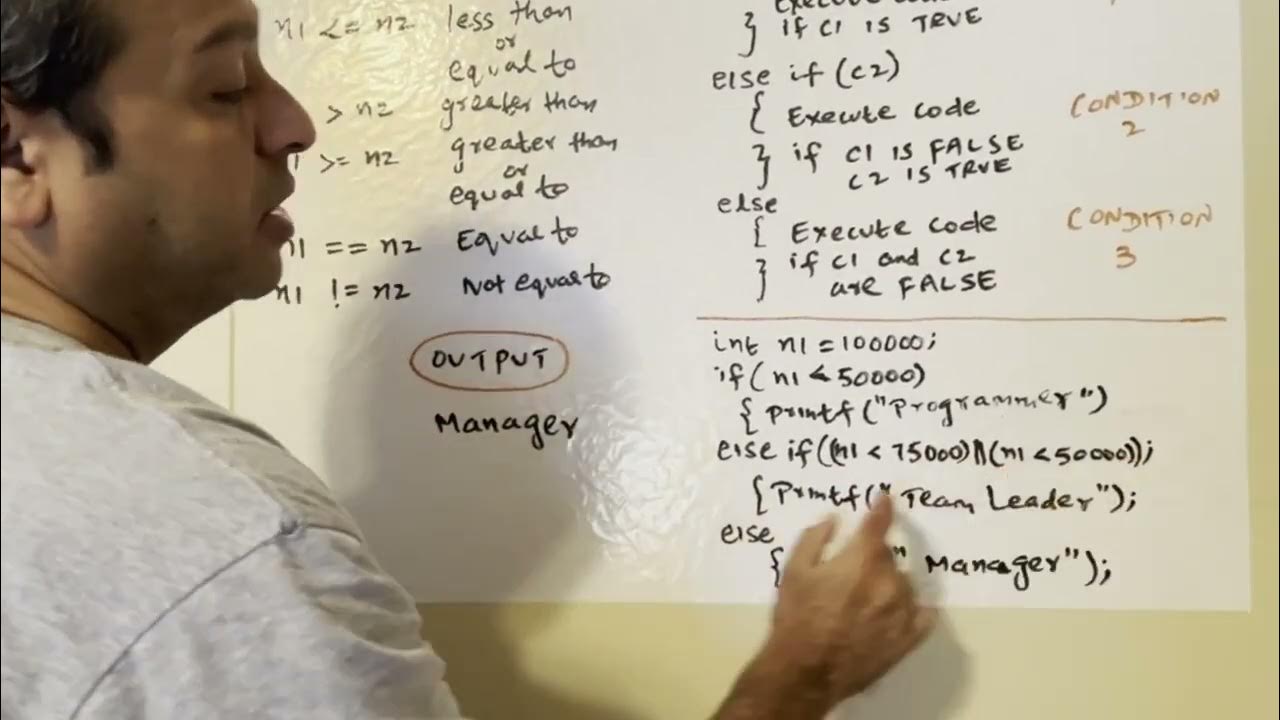 n1 <= n2 less than
or
equal to
> n2 greater than
>= n2 greater than
or
equal to
n1 == n2 Equal to
n1 != n2 Not equal to
OUTPUT
Manager
Execute code
} if C1 IS TRUE
else if (c2)
{ Execute code
} if C1 IS FALSE
C2 IS TRUE
CONDITION
2
else
{ Execute code
} if C1 and C2
are FALSE
CONDITION
3
int n1 = 100000;
if( n1 < 50000)
{ printf ("Programmer")
else if((n1 < 75000)||(n1 < 50000));
{ Printf(" Team Leader");
else
{ " Manager");